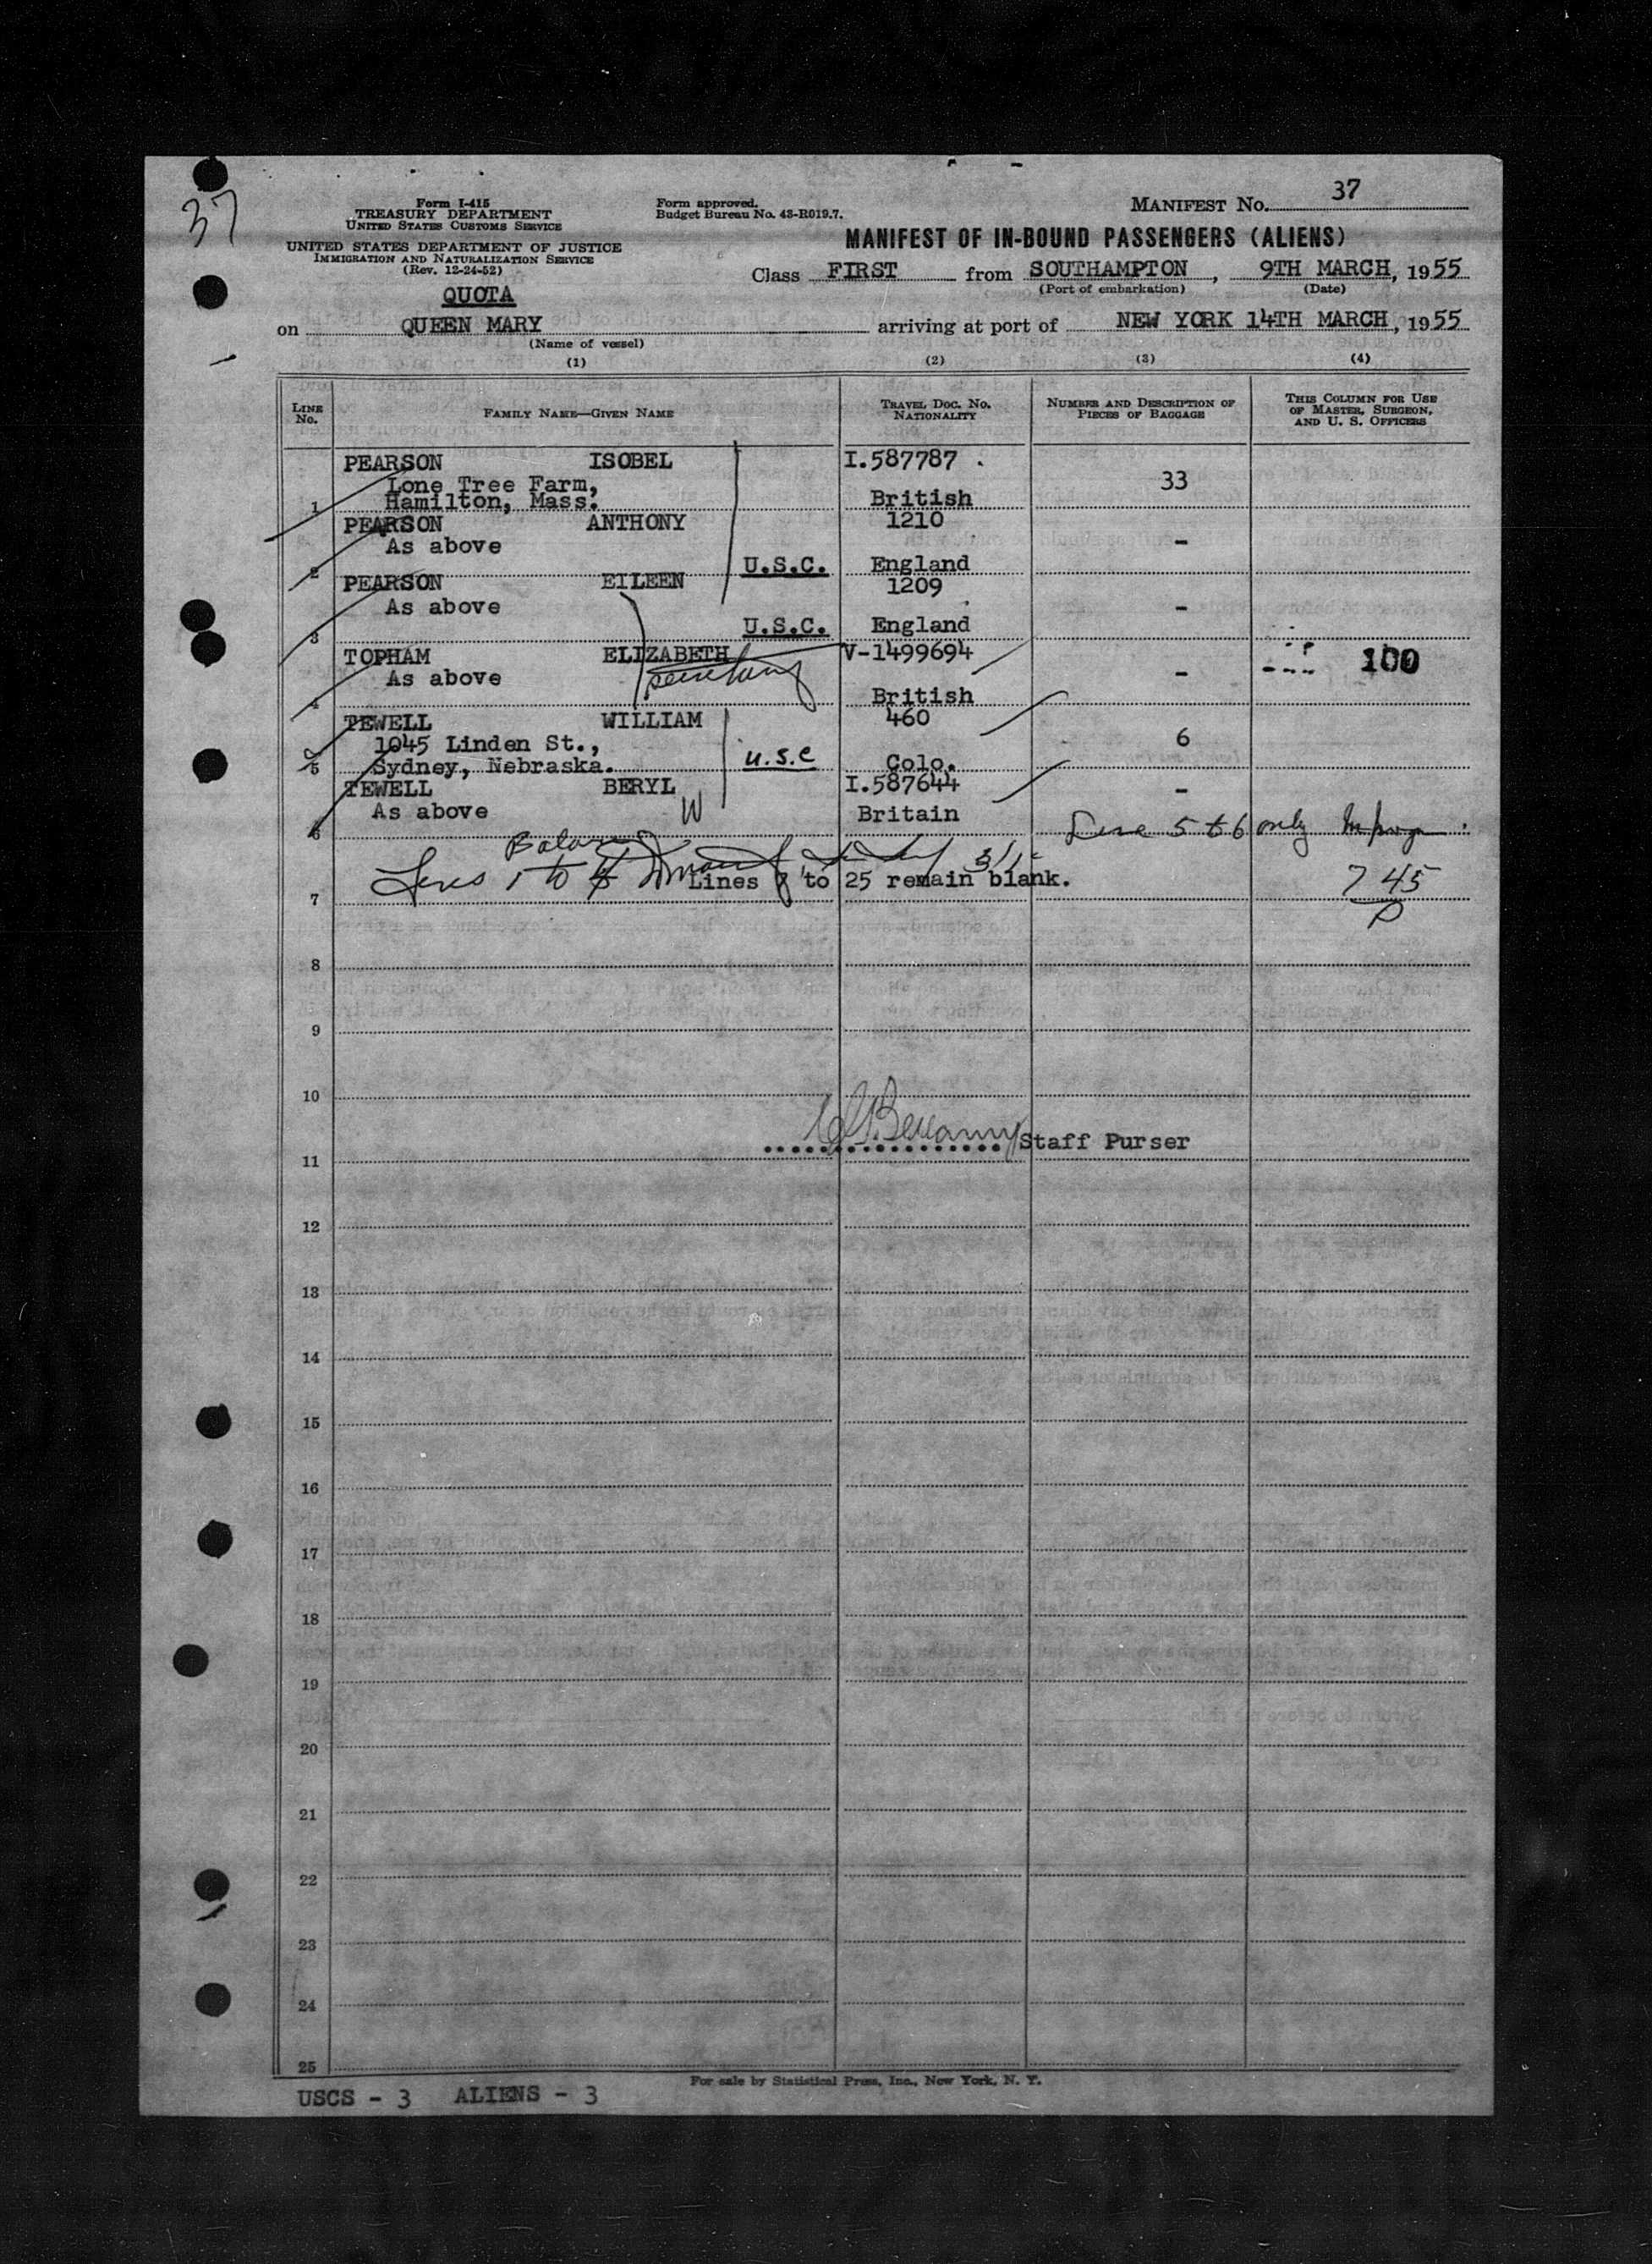 37
Form I-415
TREASURY DEPARTMENT
UNITED STATES CUSTOMS SERVICE
UNITED STATES DEPARTMENT OF JUSTICE
IMMIGRATION AND NATURALIZATION SERVICE
(Rev. 12-24-52)
Form approved.
Budget Bureau No. 43-R019.7.
MANIFEST NO. 37
MANIFEST OF IN-BOUND PASSENGERS (ALIENS)
Class FIRST from SOUTHAMPTON, 9TH MARCH, 1955
(Port of embarkation) (Date)
QUOTA
on QUEEN MARY arriving at port of NEW YORK 14TH MARCH, 1955
(Name of vessel)
(1) (2) (3) (4)
LINE No. FAMILY NAME—GIVEN NAME TRAVEL DOC. NO. NATIONALITY NUMBER AND DESCRIPTION OF PIECES OF BAGGAGE THIS COLUMN FOR USE OF MASTER, SURGEON, AND U. S. OFFICERS
PEARSON ISOBEL I.587787 .
Lone Tree Farm, 33
1 Hamilton, Mass. British
PEARSON ANTHONY 1210
As above -
2 U.S.C. England
PEARSON EILEEN 1209
As above -
3 U.S.C. England
TOPHAM ELIZABETH V-1499694 100
As above secretary -
4 British
TEWELL WILLIAM 460
1045 Linden St., 6
5 Sydney, Nebraska. U.S.C Colo.
TEWELL BERYL I.587644 -
As above W Britain
6 Line 5 to 6 only
Lines 1 to 4
7 Lines 7 to 25 remain blank. 745
8
9
10
Staff Purser
11
12
13
14
15
16
17
18
19
20
21
22
23
24
25
For sale by Statistical Press, Inc., New York, N. Y.
USCS - 3 ALIENS - 3